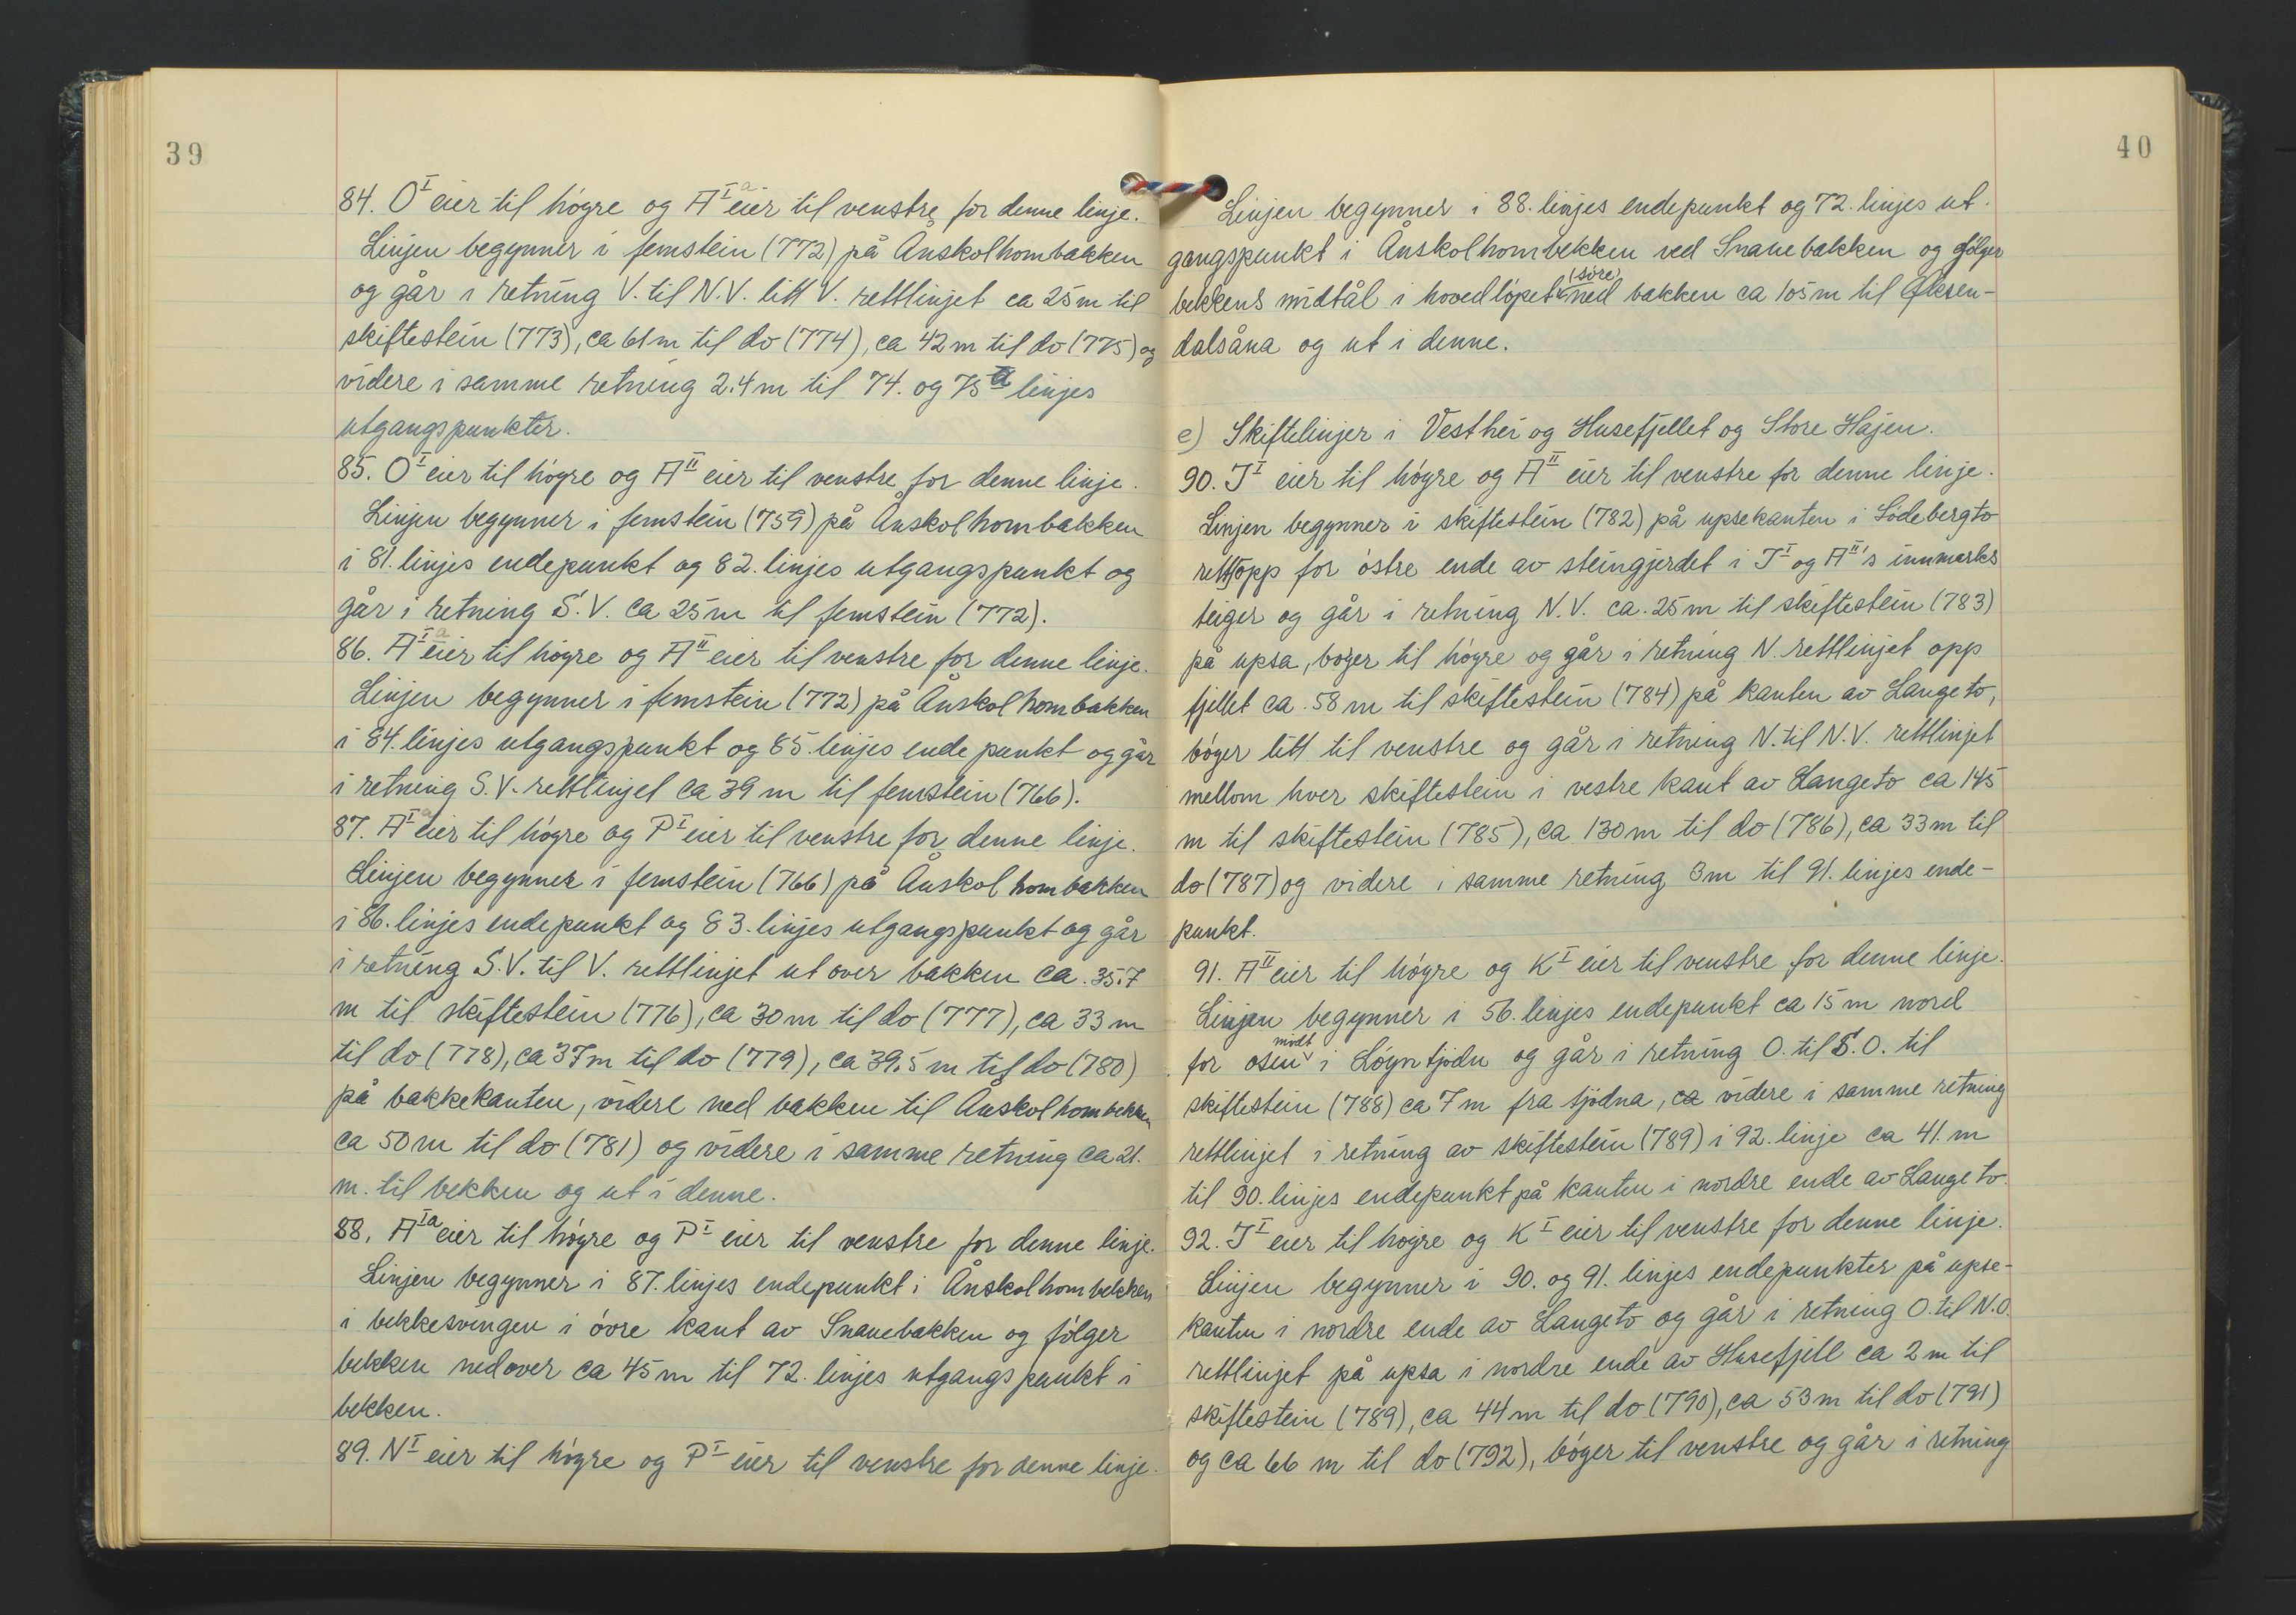 39
84. O^I eier til högre og A^Ia eier til venstre for denne linje.
Linjen begynner i femstein (772) på Ånskolhombakken
og går i retning V. til N.V. litt V. rettlinjet ca 25 m til
skiftestein (773), ca 61 m til do (774), ca 42 m til do (775) og
videre i samme retning 2.4 m til 74. og 75a linjes
utgangspunkter.
85. O^I eier til högre og A^II eier til venstre for denne linje.
Linjen begynner i femstein (759) på Ånskolhombakken
i 81. linjes endepunkt og 82. linjes utgangspunkt og
går i retning S.V. ca 25 m til femstein (772).
86. A^Ia eier til högre og A^II eier til venstre for denne linje.
Linjen begynner i femstein (772) på Ånskolhombakken
i 84. linjes utgangspunkt og 85. linjes endepunkt og går
i retning S.V. rettlinjet ca 39 m til femstein (766).
87. A^Ia eier til högre og P^I eier til venstre for denne linje.
Linjen begynner i femstein (766) på Ånskolhombakken
i 86. linjes endepunkt og 83. linjes utgangspunkt og går
i retning S.V. til V. rettlinjet ut over bakken ca. 35.7
m til skiftestein (776), ca 30 m til do (777), ca 33 m
til do (778), ca 37 m til do (779), ca 39.5 m til do (780)
på bakkekanten, videre ned bakken til Ånskolhombekken
ca 50 m til do (781) og videre i samme retning ca 21.
m. til bekken og ut i denne.
88. A^Ia eier til högre og P^I eier til venstre for denne linje.
Linjen begynner i 87. linjes endepunkt i Ånskolhombekken
i bekkesvingen i övre kant av Snauebakken og fölger
bekken nedover ca 45 m til 72. linjes utgangspunkt i
bekken.
89. N^I eier til högre og P^I eier til venstre for denne linje.
40
Linjen begynner i 88. linjes endepunkt og 72. linjes ut-
gangspunkt i Ånskolhombekken ved Snauebakken og fölger
bekkens midtål i hovedlöpet (söre) ned bakken ca 105 m til Öksen-
dalsåna og ut i denne.
e) Skiftelinjer i Vesthei og Husefjellet og Store Håjen.
90. J^I eier til högre og A^II eier til venstre for denne linje.
Linjen begynner i skiftestein (782) på upsekanten i Södebergto
rett opp for östre ende av steingjerdet i J^I og A^II's innmarks
teiger og går i retning N.V. ca. 25 m til skiftestein (783)
på upsa, böger til högre og går i retning N. rettlinjet opp
fjellet ca. 58 m til skiftestein (784) på kanten av Langeto,
böger litt til venstre og går i retning N. til N.V. rettlinjet
mellom hver skiftestein i vestre kant av Langeto ca 145
m til skiftestein (785), ca 130 m til do (786), ca 33 m til
do (787) og videre i samme retning 3 m til 91. linjes ende-
punkt.
91. A^II eier til högre og K^I eier til venstre for denne linje.
Linjen begynner i 56. linjes endepunkt ca 15 m nord
for osen midt i Löyntjödn og går i retning O. til S.O. til
skiftestein (788) ca 7 m fra tjödna, ca videre i samme retning
rettlinjet i retning av skiftestein (789) i 92. linje ca 41. m
til 90. linjes endepunkt på kanten i nordre ende av Langeto.
92. J^I eier til högre og K^I eier til venstre for denne linje.
Linjen begynner i 90. og 91. linjes endepunkter på upse-
kanten i nordre ende av Langeto og går i retning O. til N.O.
rettlinjet på upsa i nordre ende av Husefjell ca 2 m til
skiftestein (789), ca 44 m til do (790), ca 53 m til do (791)
og ca 66 m til do (792), böger til venstre og går i retning